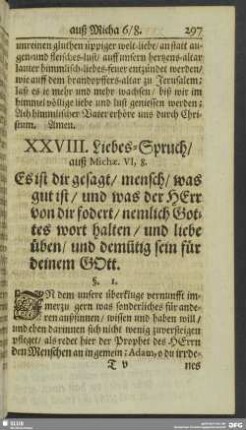 auß Micha 6/8. 297
unreinen gluthen üppiger welt-liebe/ anstatt au-
gen-und fleisches-lust/ auff unsern hertzens-altar
lauter himmlisch-liebes-feuer entzündet werden/
wie auff dem brandopffers-altar zu Jerusalem:
laß es je mehr und mehr wachsen/ biß wir im
himmel völlige liebe und lust geniessen werden:
Ach himmlischer Vater erhöre uns durch Chri-
stum. Amen.
XXVIII. Liebes-Spruch/
auß Michæ. VI, 8.
Es ist dir gesagt/ mensch/ was
gut ist/ und was der HErr
von dir fodert/ nemlich Got-
tes wort halten/ und liebe
üben/ und demütig sein für
deinem GOtt.
§. 1.
IN dem unsere überkluge vernunfft im-
merzu gern was sonderliches für ande-
ren außsinnen/ wissen und haben will/
und eben darinnen sich nicht wenig zuversteigen
pfleget/ als redet hier der Prophet des HErrn
den Menschen an ingemein: Adam, o du irrde-
T v nes